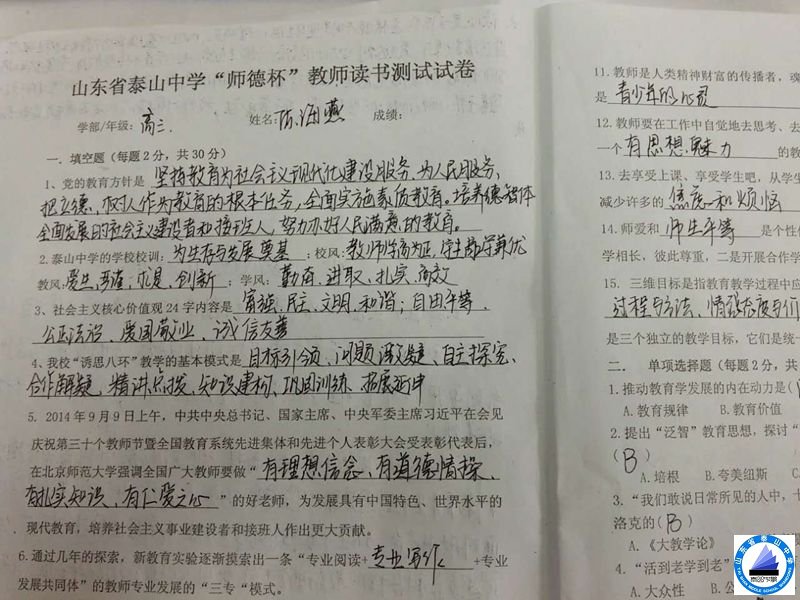 山东省泰山中学“师德杯”教师读书测试试卷
学部/年级：高三 姓名：陈海燕 成绩：
一、填空题（每题2分，共30分）
1、党的教育方针是 坚持教育为社会主义现代化建设服务，为人民服务，
把立德、树人作为教育的根本任务，全面实施素质教育。培养德智体
全面发展的社会主义建设者和接班人，努力办好人民满意的教育。
2.泰山中学的学校校训：为生存与发展奠基；校风：教师学高为正，学生品学兼优
教风：爱生、严谨、求是、创新；学风：勤奋、进取、扎实、高效
3、社会主义核心价值观24字内容是 富强、民主、文明、和谐；自由平等、
公正法治、爱国敬业、诚信友善
4、我校“诱思八环”教学的基本模式是 目标引领、问题释疑、自主探究、
合作解疑、精讲点拨、知识建构、巩固训练、拓展延伸
5. 2014年9月9日上午，中共中央总书记、国家主席、中央军委主席习近平在会见
庆祝第三十个教师节暨全国教育系统先进集体和先进个人表彰大会受表彰代表后，
在北京师范大学强调全国广大教师要做“有理想信念、有道德情操、
有扎实知识、有仁爱之心”的好老师，为发展具有中国特色、世界水平的
现代教育，培养社会主义事业建设者和接班人作出更大贡献。
6.通过几年的探索，新教育实验逐渐摸索出一条“专业阅读+专业写作+专业
发展共同体”的教师专业发展的“三专“模式。
11.教师是人类精神财富的传播者，魂
是 青少年的心灵
12.教师要在工作中自觉地去思考、去
一个 有思想、魅力 的教
13.去享受上课、享受学生吧，从学生
减少许多的 焦虑和烦恼
14.师爱和 师生平等 是个性化
学相长，彼此尊重，二是开展合作学
15．三维目标是指教育教学过程中应
过程与方法、情感态度与价
是三个独立的教学目标，它们是统一
二． 单项选择题（每题2分，共
1.推动教育学发展的内在动力是（
A.教育规律 B.教育价值
2.提出“泛智”教育思想，探讨“
（B）
A.培根 B.夸美纽斯 C
3.“我们敢说日常所见的人中，十
洛克的（B）
A.《大教学论》
4.“活到老学到老”
A.大众性 B.公
山东省泰山中学